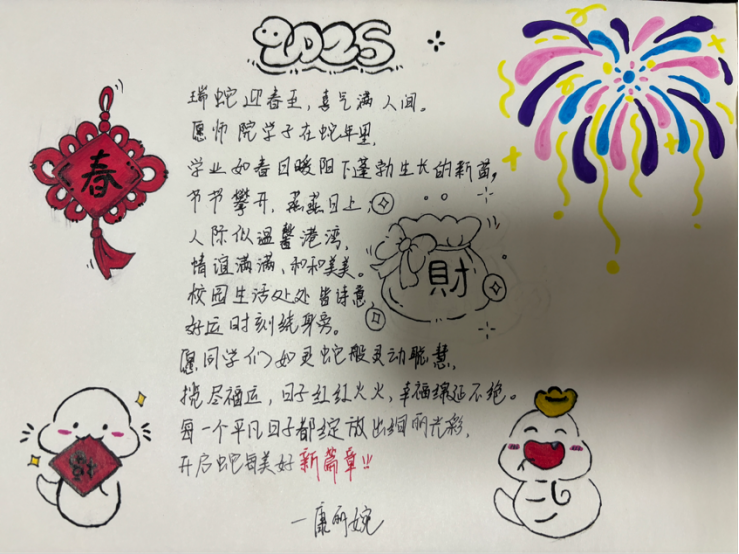 2025
春
瑞蛇迎春至，喜气满人间。
愿师院学子在蛇年里，
学业如春日暖阳下蓬勃生长的新苗，
节节攀开，蒸蒸日上；
人际似温馨港湾，
情谊满满，和和美美。
財
校园生活处处皆诗意，
好运时刻绕身旁。
愿同学们如灵蛇般灵动聪慧，
揽尽福运，日子红红火火，幸福绵延不绝。
每一个平凡日子都绽放出绚丽光彩，
开启蛇年美好新篇章!!
—康丽婉